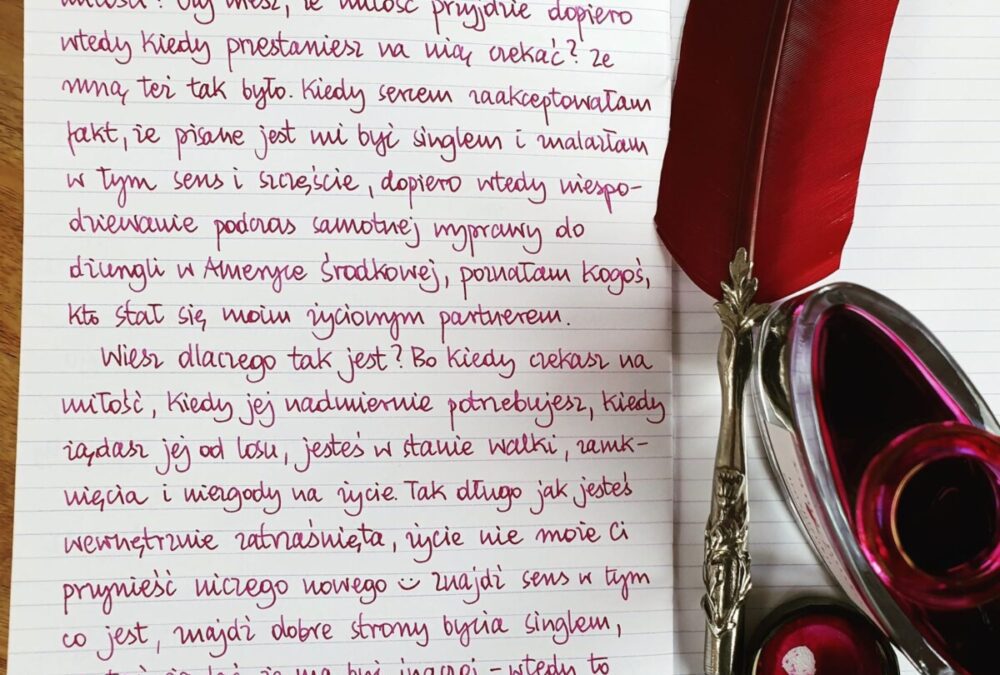 miłość przyjdzie dopiero
wtedy kiedy przestaniesz na nią czekać? Ze
mną też tak było. Kiedy sercem zaakceptowałam
fakt, że pisane jest mi być singlem i znalazłam
w tym sens i szczęście, dopiero wtedy niespo-
dziewanie podczas samotnej wyprawy do
dżungli w Ameryce Środkowej, poznałam kogoś,
kto stał się moim życiowym partnerem.
Wiesz dlaczego tak jest? Bo kiedy czekasz na
miłość, kiedy jej nadmiernie potrzebujesz, kiedy
żądasz jej od losu, jesteś w stanie walki, zamk-
nięcia i niezgody na życie. Tak długo jak jesteś
wewnętrznie zatrzaśnięta, życie nie może Ci
przynieść niczego nowego :) Znajdź sens w tym
co jest, znajdź dobre strony bycia singlem,
ma być inaczej – wtedy to